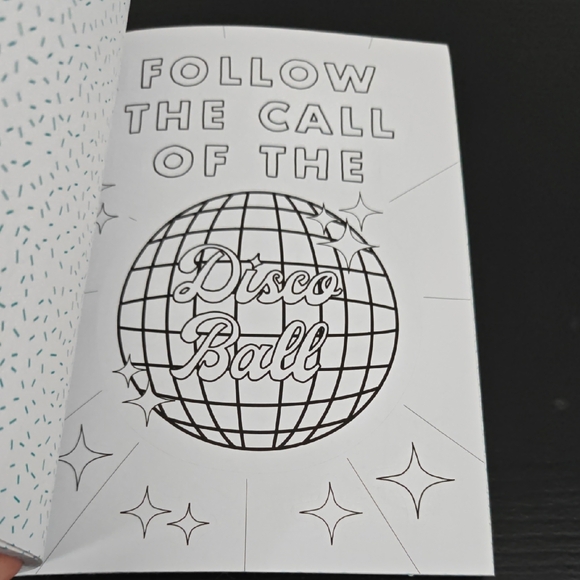 FOLLOW
THE CALL
OF THE
Disco
Ball